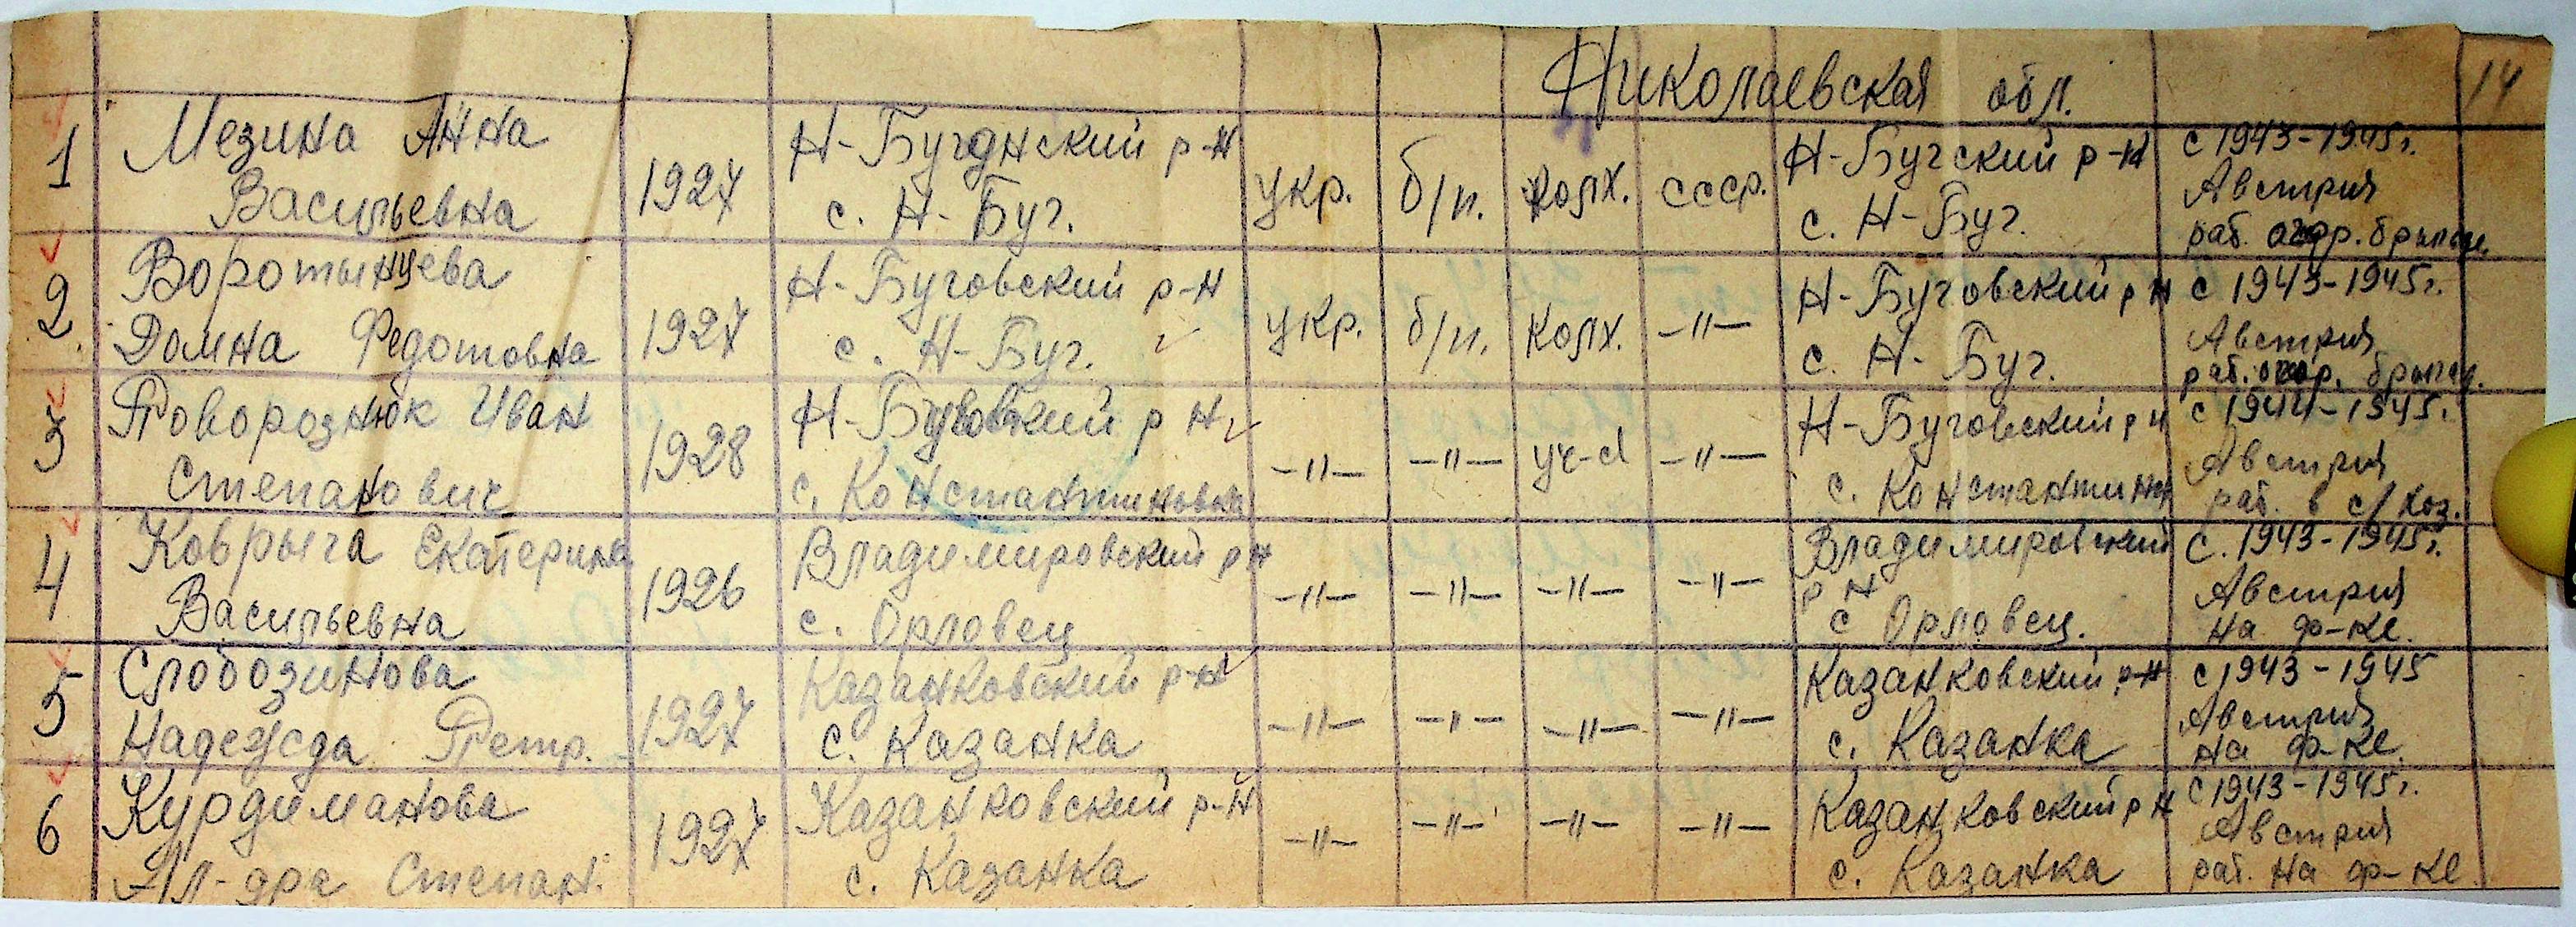 Николаевская обл.
14
1 Мезина Анна
Васильевна
1927
Н-Бугднский р-н
с. Н-Буг.
укр.
б/п.
колх.
СССР.
Н-Бугский р-н
с. Н-Буг.
с 1943-1945г.
Австрия
раб.
2. Воротынцева
Домна Федотовна
1927
Н-Буговский р-н
с. Н-Буг.
укр.
б/п.
колх.
-"-
Н-Буговский р н
с. Н-Буг.
с 1943-1945г.
Австрия
раб.
3 Поворознюк Иван
Степанович
1928
Н-Буговский р н
с. Константиновка
-"-
-"-
уч-я
-"-
Н-Буговский р н
с. Константин
с 1944-1945г.
Австрия
раб. в с/хоз.
4 Коврыга Екатерина
Васильевна
1926
Владимировский р н
с. Орловец
-"-
-"-
-"-
-"-
Владимировский
р н
с Орловец.
с. 1943-1945г.
Австрия
на ф-ке.
5 Слободзинова
Надежда Петр.
1927
Казанковский р-н
с. Казанка
-"-
-"-
-"-
-"-
Казанковский р-н
с. Казанка
с 1943-1945
Австрия
на ф-ке.
6 Курдиманова
Ал-дра Степан.
1927
Казанковский р-н
с. Казанка
-"-
-"-
-"-
-"-
Казанковский р н
с. Казанка
с 1943-1945г.
Австрия
раб. на ф-ке